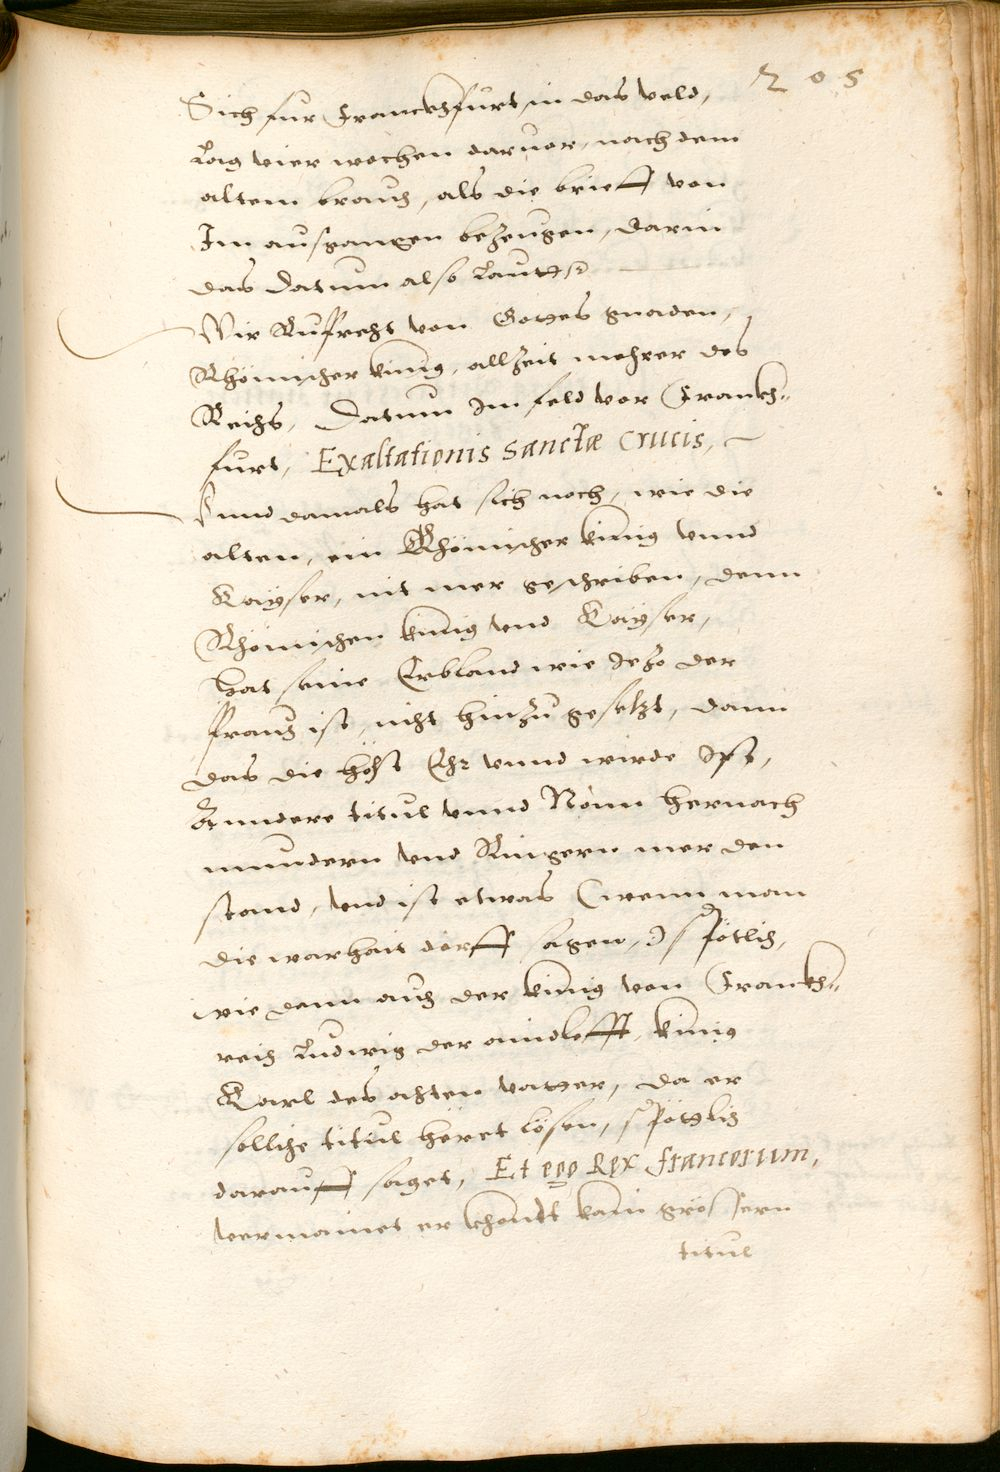 205
Sich fur Franckhfurt in das veld,
Lag vier wochen daruor, nach dem
altem brauch, als die brieff von
Im ausgangen bezeugen, darin
das datum also Lauttet
Wir Ruprecht von Gottes gnaden,
Rhömischer künig, allzeit mehrer des
Reichs, Datum Im feld vor Franckh-
furt, Exaltationis sanctæ Crucis,
Vnnd damals hat sich noch, wie die
alten, ein Rhömischer künig vnnd
Kayser, nit mer geschriben, denn
Rhömischen künig vnd Kayser,
hat seine Erbland wie Jezo der
brauch ist, nicht hinzu gesetzt, dann
das die höchst Ehr vnnd wirde Ist,
Anndere titul vnnd Nām hernach
mundern vnd Ringern mer den
stand, vnd ist etwas (wenn man
die warhait dörff sagen,) spötlich,
wie dann auch der künig von Franckh-
reich Ludwig der aindlefft, künig
Karl des achten vatter, da er
solliche titul höret lösen, spöttlich
darauff saget, Et ego Rex francorum,
vermainet er khondt kain grössern
titul